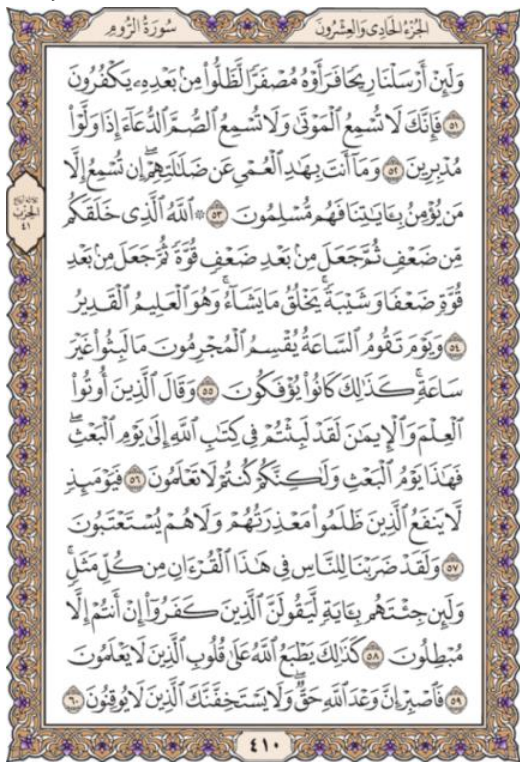 سُورَةُ الرُّومِ
الجُزْءُ الحَادِي وَالعِشْرُونَ
وَلَئِنۡ أَرۡسَلۡنَا رِيحٗا فَرَأَوۡهُ مُصۡفَرّٗا لَّظَلُّواْ مِنۢ بَعۡدِهِۦ يَكۡفُرُونَ
٥١ فَإِنَّكَ لَا تُسۡمِعُ ٱلۡمَوۡتَىٰ وَلَا تُسۡمِعُ ٱلصُّمَّ ٱلدُّعَآءَ إِذَا وَلَّوۡاْ
مُدۡبِرِينَ ٥٢ وَمَآ أَنتَ بِهَٰدِ ٱلۡعُمۡيِ عَن ضَلَٰلَتِهِمۡۖ إِن تُسۡمِعُ إِلَّا
مَن يُؤۡمِنُ بِـَٔايَٰتِنَا فَهُم مُّسۡلِمُونَ ٥٣ ۞ ٱللَّهُ ٱلَّذِي خَلَقَكُم
مِّن ضَعۡفٖ ثُمَّ جَعَلَ مِنۢ بَعۡدِ ضَعۡفٖ قُوَّةٗ ثُمَّ جَعَلَ مِنۢ بَعۡدِ
قُوَّةٖ ضَعۡفٗا وَشَيۡبَةٗۚ يَخۡلُقُ مَا يَشَآءُۚ وَهُوَ ٱلۡعَلِيمُ ٱلۡقَدِيرُ
٥٤ وَيَوۡمَ تَقُومُ ٱلسَّاعَةُ يُقۡسِمُ ٱلۡمُجۡرِمُونَ مَا لَبِثُواْ غَيۡرَ
سَاعَةٖۚ كَذَٰلِكَ كَانُواْ يُؤۡفَكُونَ ٥٥ وَقَالَ ٱلَّذِينَ أُوتُواْ
ٱلۡعِلۡمَ وَٱلۡإِيمَٰنَ لَقَدۡ لَبِثۡتُمۡ فِي كِتَٰبِ ٱللَّهِ إِلَىٰ يَوۡمِ ٱلۡبَعۡثِۖ
فَهَٰذَا يَوۡمُ ٱلۡبَعۡثِ وَلَٰكِنَّكُمۡ كُنتُمۡ لَا تَعۡلَمُونَ ٥٦ فَيَوۡمَئِذٖ
لَّا يَنفَعُ ٱلَّذِينَ ظَلَمُواْ مَعۡذِرَتُهُمۡ وَلَا هُمۡ يُسۡتَعۡتَبُونَ
٥٧ وَلَقَدۡ ضَرَبۡنَا لِلنَّاسِ فِي هَٰذَا ٱلۡقُرۡءَانِ مِن كُلِّ مَثَلٖۚ
وَلَئِن جِئۡتَهُم بِـَٔايَةٖ لَّيَقُولَنَّ ٱلَّذِينَ كَفَرُوٓاْ إِنۡ أَنتُمۡ إِلَّا
مُبۡطِلُونَ ٥٨ كَذَٰلِكَ يَطۡبَعُ ٱللَّهُ عَلَىٰ قُلُوبِ ٱلَّذِينَ لَا يَعۡلَمُونَ
٥٩ فَٱصۡبِرۡ إِنَّ وَعۡدَ ٱللَّهِ حَقّٞۖ وَلَا يَسۡتَخِفَّنَّكَ ٱلَّذِينَ لَا يُوقِنُونَ ٦٠
الحِزْبِ
٤١
٤١٠